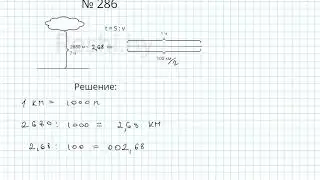 № 286
t = S : v
2680 м - 2,68 км
? ч
1 ч
100 км/ч
Решение:
1 км = 1000 м
2680 : 1000 = 2,68 км
2,68 : 100 = 002,68